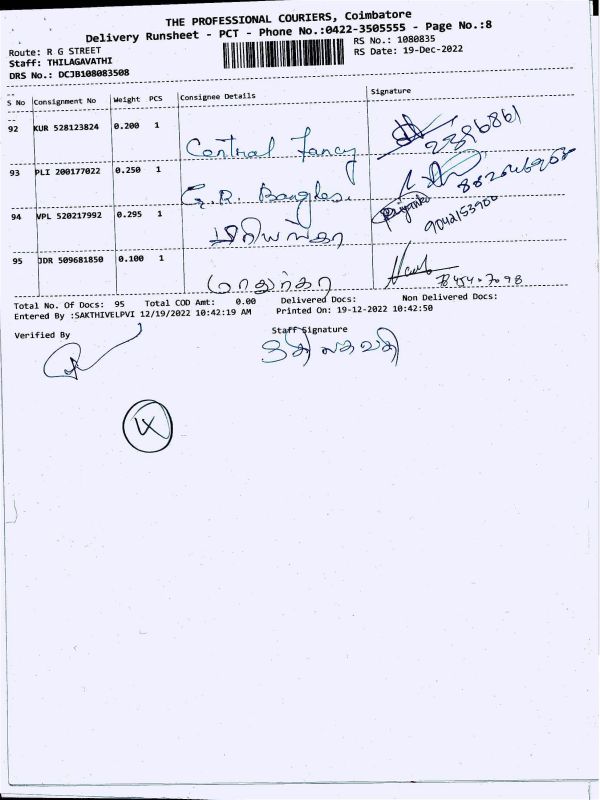 THE PROFESSIONAL COURIERS, Coimbatore
Delivery Runsheet - PCT - Phone No.:0422-3505555 - Page No.:8
Route: R G STREET
RS No.: 1080835
Staff: THILAGAVATHI
RS Date: 19-Dec-2022
DRS No.: DCJB108083508
S No Consignment No Weight PCS Consignee Details Signature
92 KUR 528123824 0.200 1 Central Fancy
93 PLI 200177022 0.250 1 G.R. Bangles.
94 VPL 520217992 0.295 1 பிரியங்கா Priyanka 9042153900
95 JDR 509681850 0.100 1
Total No. Of Docs: 95 Total COD Amt: 0.00 Delivered Docs: Non Delivered Docs:
Entered By :SAKTHIVELPVI 12/19/2022 10:42:19 AM Printed On: 19-12-2022 10:42:50
Verified By Staff Signature
திலகவதி